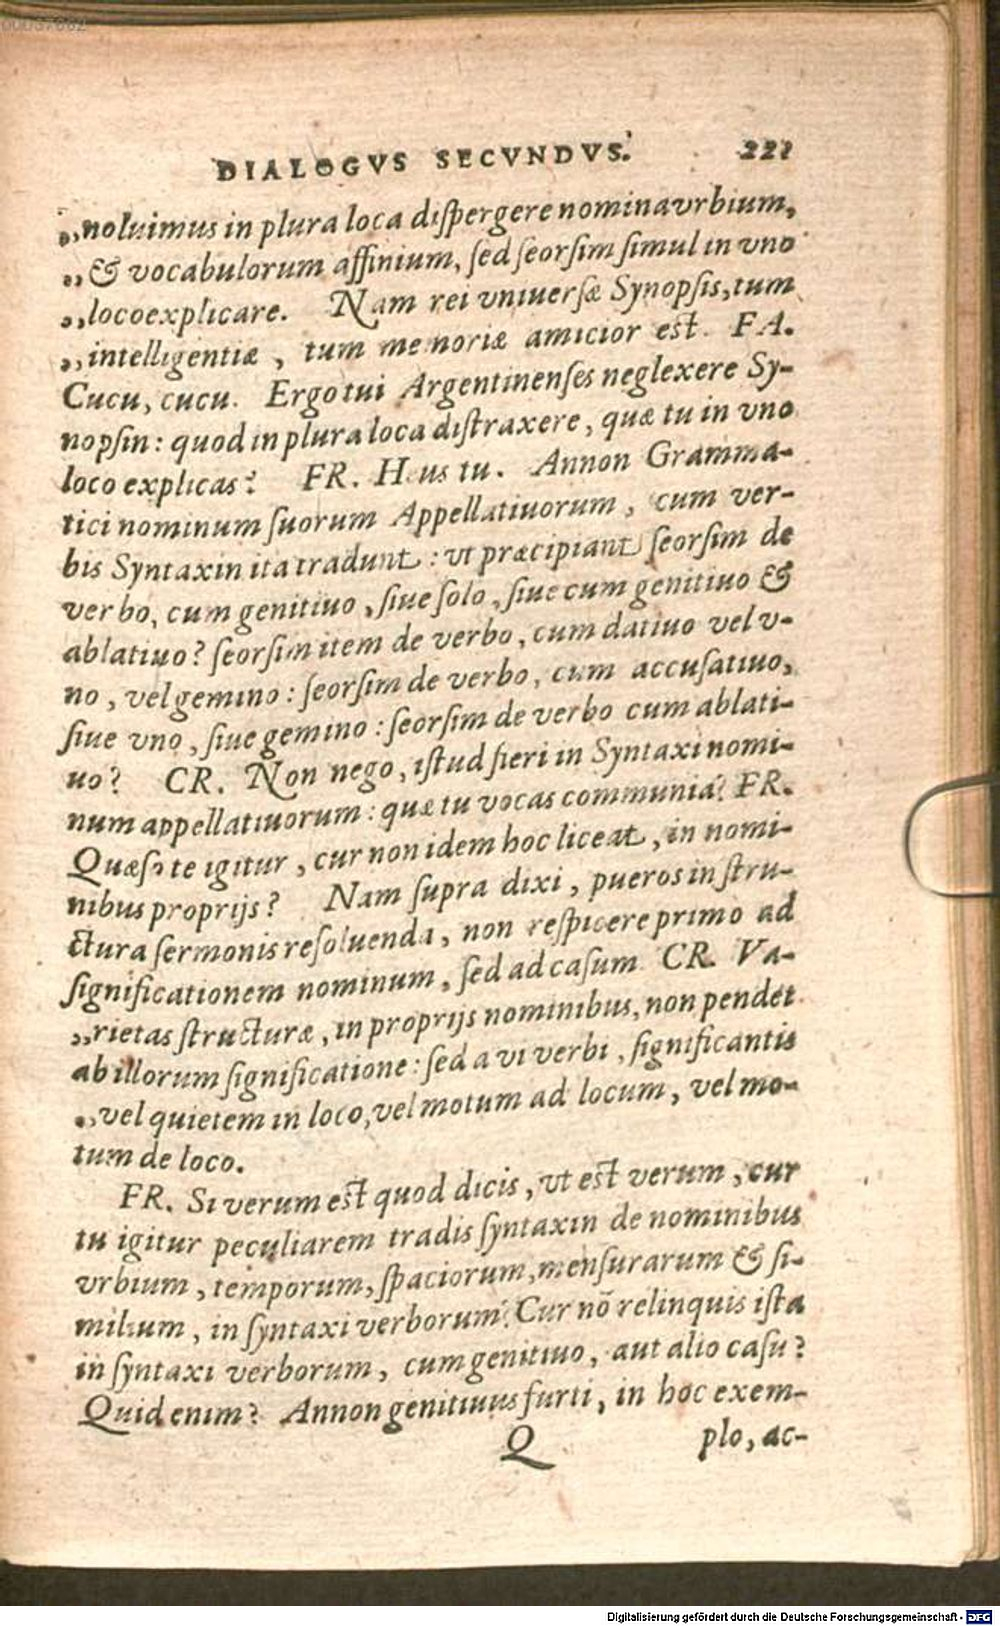 00037662
DIALOGVS SECVNDVS.
221
„noluimus in plura loca dispergere nomina vrbium,
„& vocabulorum affinium, sed seorsim simul in vno
„loco explicare. Nam rei vniuersæ Synopsis, tum
„intelligentiæ, tum memoriæ amicior est. FA.
Cucu, cucu. Ergo tui Argentinenses neglexere Sy-
nopsin: quod in plura loca distraxere, quæ tu in vno
loco explicas? FR. Heus tu. Annon Gramma-
tici nominum suorum Appellatiuorum, cum ver-
bis Syntaxin ita tradunt: vt præcipiant seorsim de
verbo, cum genitiuo, siue solo, siue cum genitiuo &
ablatiuo? seorsim item de verbo, cum datiuo vel v-
no, vel gemino: seorsim de verbo, cum accusatiuo,
siue vno, siue gemino: seorsim de verbo cum ablati-
uo? CR. Non nego, istud fieri in Syntaxi nomi-
num appellatiuorum: quæ tu vocas communia? FR.
Quæso te igitur, cur non idem hoc liceat, in nomi-
nibus proprijs? Nam supra dixi, pueros in stru-
ctura sermonis resoluenda, non respicere primo ad
significationem nominum, sed ad casum. CR. Va-
„rietas structuræ, in proprijs nominibus, non pendet
ab illorum significatione: sed a vi verbi, significantis
„vel quietem in loco, vel motum ad locum, vel mo-
tum de loco.
FR. Si verum est quod dicis, vt est verum, cur
tu igitur peculiarem tradis syntaxin de nominibus
vrbium, temporum, spaciorum, mensurarum & si-
milium, in syntaxi verborum? Cur nō relinquis ista
in syntaxi verborum, cum genitiuo, aut alio casu?
Quid enim? Annon genitiuus furti, in hoc exem-
Q
plo, ac-
Digitalisierung gefördert durch die Deutsche Forschungsgemeinschaft - DFG